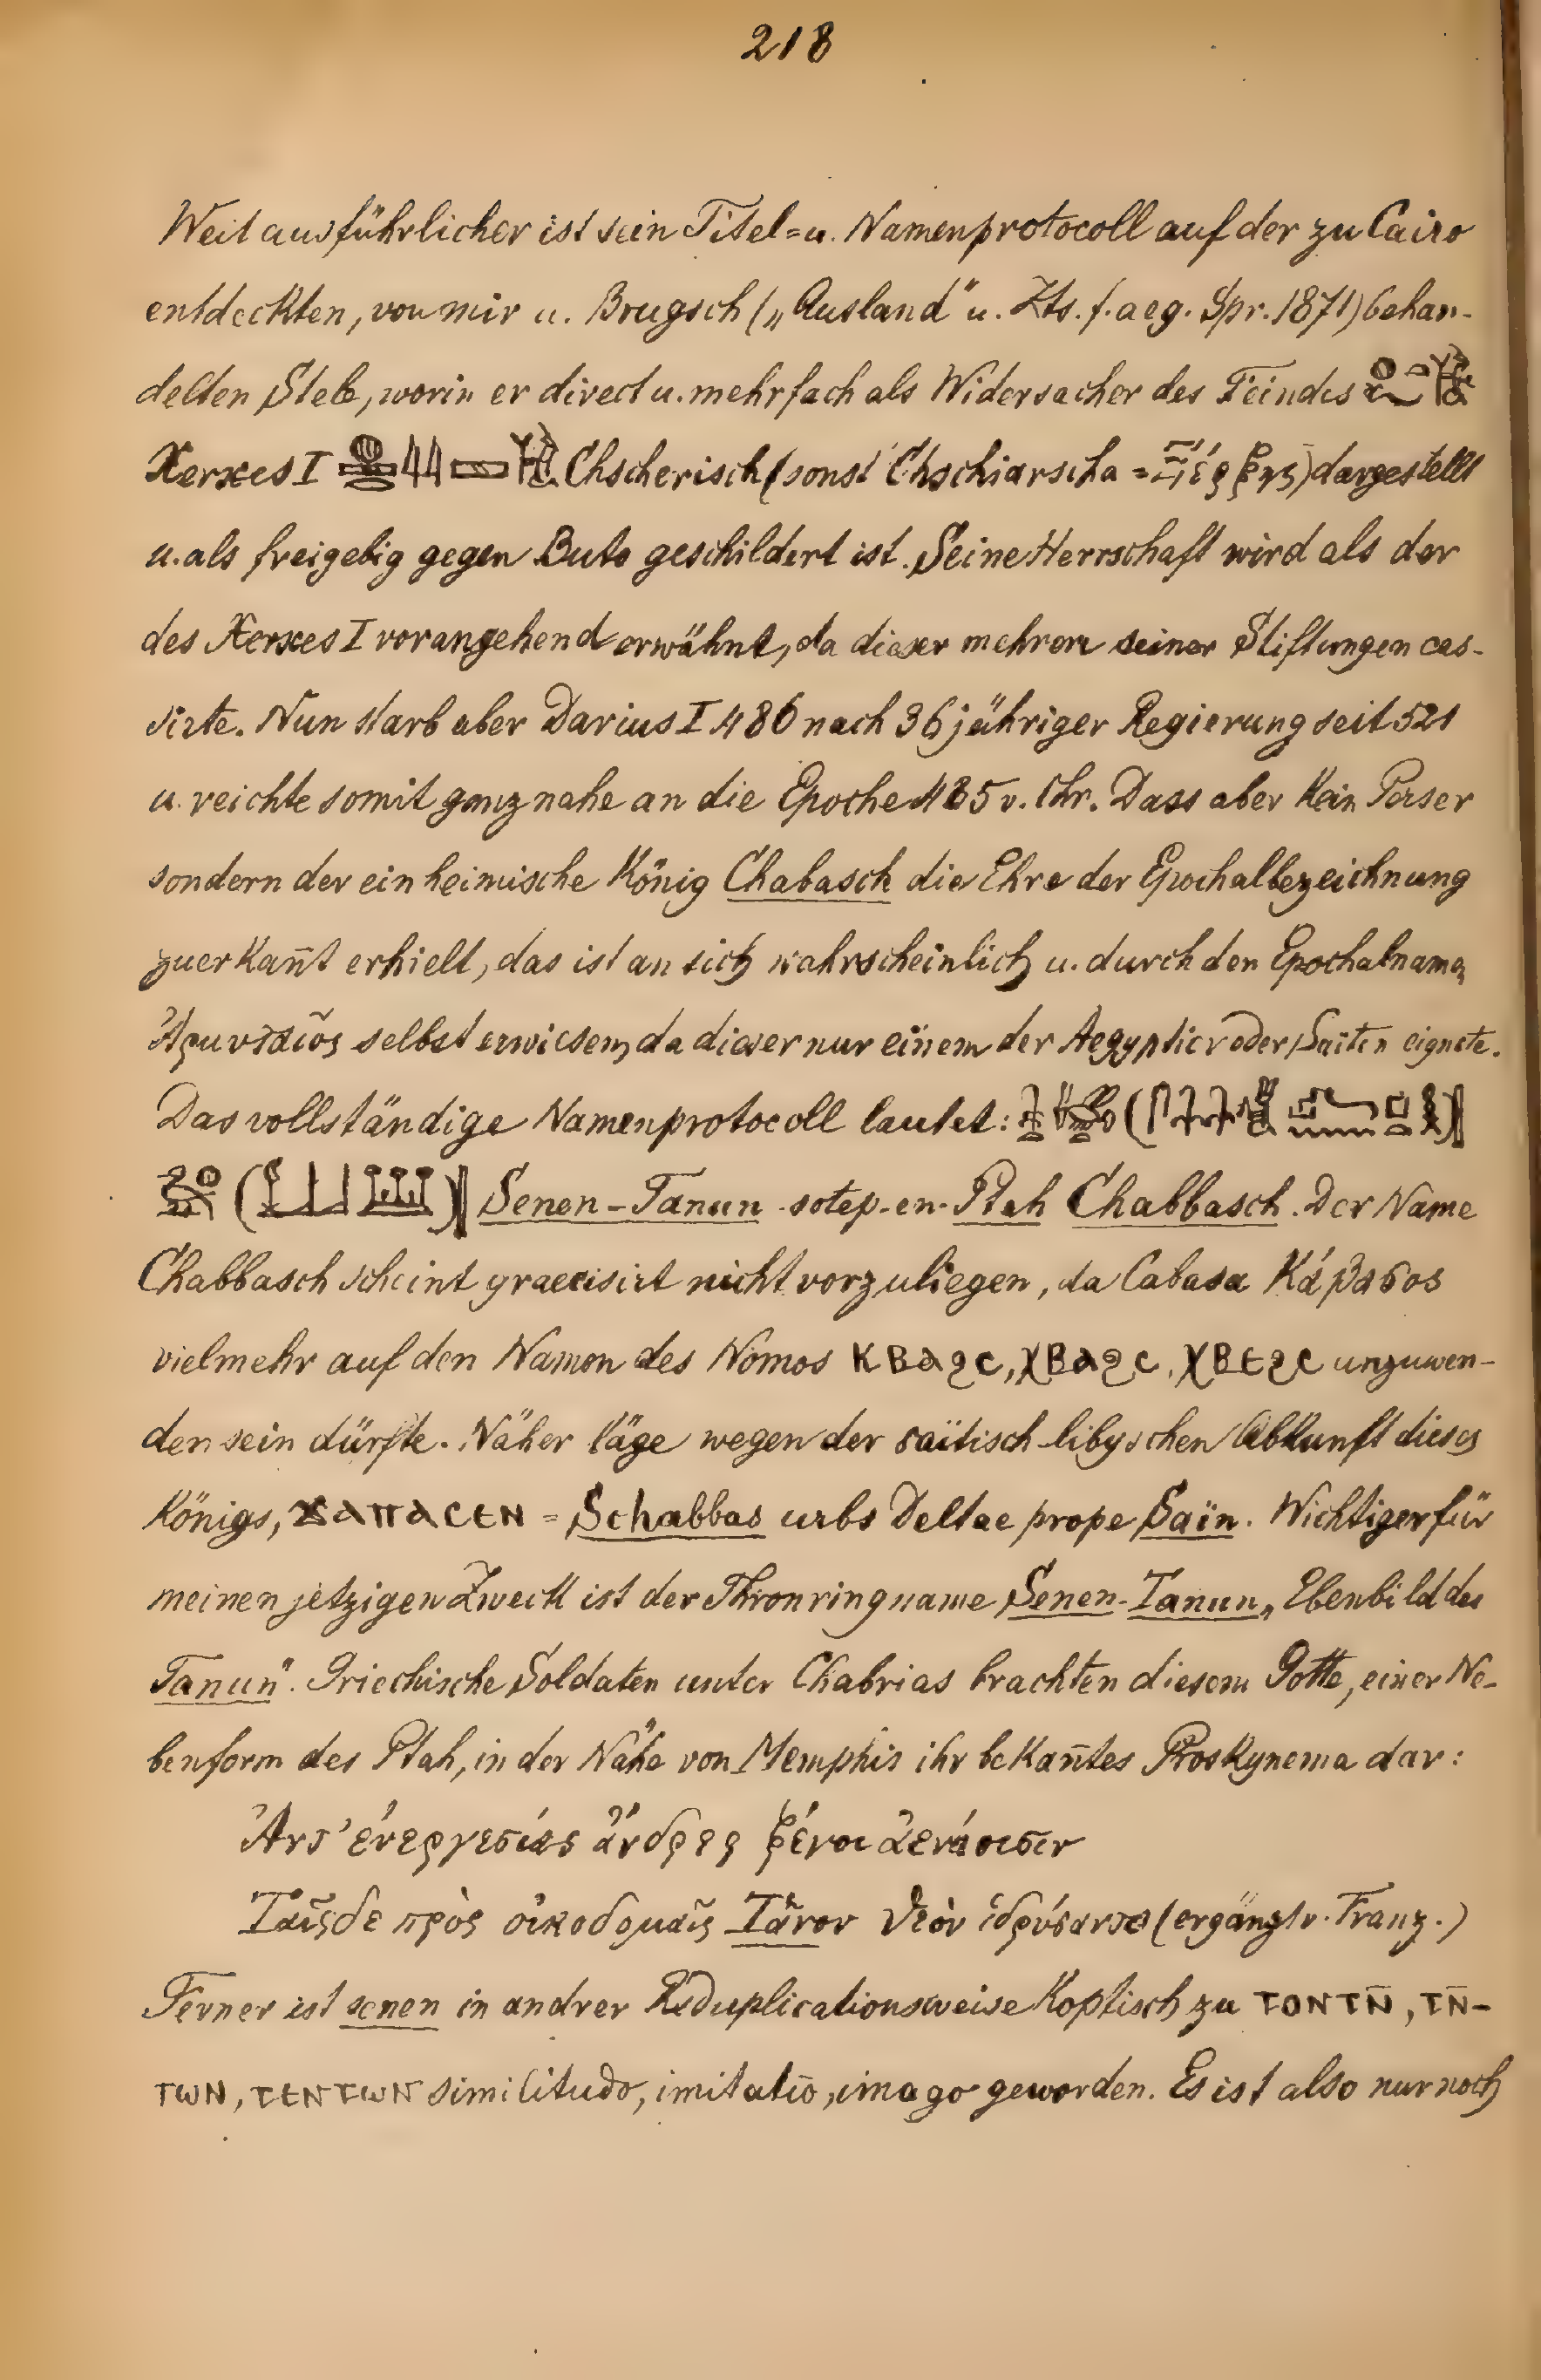 218
Weit ausführlicher ist sein Titel= u. Namenprotocoll auf der zu Cairo
entdeckten, von mir u. Brugsch („Ausland“ u. Zts. f. aeg. Spr. 1871) behan-
delten Stele, worin er direct u. mehrfach als Widersacher des Feindes
Xerxes I Chscherisch (sonst Chschiarscha = Ξέρξης) dargestellt
u. als freigebig gegen Buto geschildert ist. Seine Herrschaft wird als der
des Xerxes I vorangehend erwähnt, da dieser mehrere seiner Stiftungen cas-
sirte. Nun starb aber Darius I 486 nach 36jähriger Regierung seit 521
u. reichte somit ganz nahe an die Epoche 485 v. Chr. Dass aber kein Perser
sondern der einheimische König Chabasch die Ehre der Epochalbezeichnung
zuerkañt erhielt, das ist an sich wahrscheinlich u. durch den Epochalnamen
selbst erwiesen, da dieser nur einem der Aegyptier oder Saiten eignete.
Das vollständige Namenprotocoll lautet:
Senen-Tanun-sotep-en-Ptah Chabbasch. Der Name
Chabbasch scheint graecisirt nicht vorzuliegen, da Cabasa Κάβασος
vielmehr auf den Namen des Nomos ΚΒΑϨС, ΧΒΑϨС, ΧΒЄϨС anzuwen-
den sein dürfte. Näher läge wegen der saïtisch-libyschen Abkunft dieses
Königs, ϪΑΠΑСЄΝ = Schabbas urbs Deltae prope Saïn. Wichtiger für
meinen jetzigen Zweck ist der Thronringname Senen-Tanun „Ebenbild des
Tanun“. Griechische Soldaten unter Chabrias brachten diesem Gotte, einer Ne-
benform des Ptah, in der Nähe von Memphis ihr bekañtes Proskynema dar:
Ἀντ’ ἐνεργεσίας ἄνδρες ξένοι ἀενάοισιν
Ταῖσδε πρὸς οἰκοδομαῖς Τᾶνον θεὸν ἱδρύσαντο (ergänzt v. Franz.)
Ferner ist senen in andrer Reduplicationsweise koptisch zu ΤΟΝΤΝ̄, ΤΝ̄-
ΤωΝ, ΤЄΝΤωΝ similitudo, imitatio, imago geworden. Es ist also nur noch